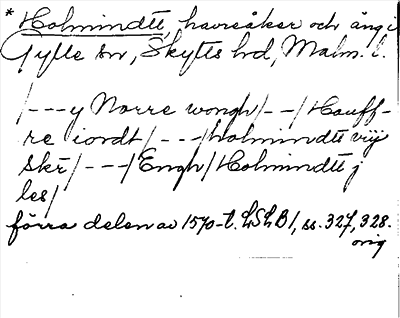 * Holmindtt, havreåker och äng i
Gylle sn, Skytts hd, Malm. l.
/---y Norre wongh/--/Hauff-
re iordt/---/holmindtt vij
skr/---/Engh/Holmindtt j
les/
förra delen av 1570-t. LSLB 1, ss. 327, 328.
orig